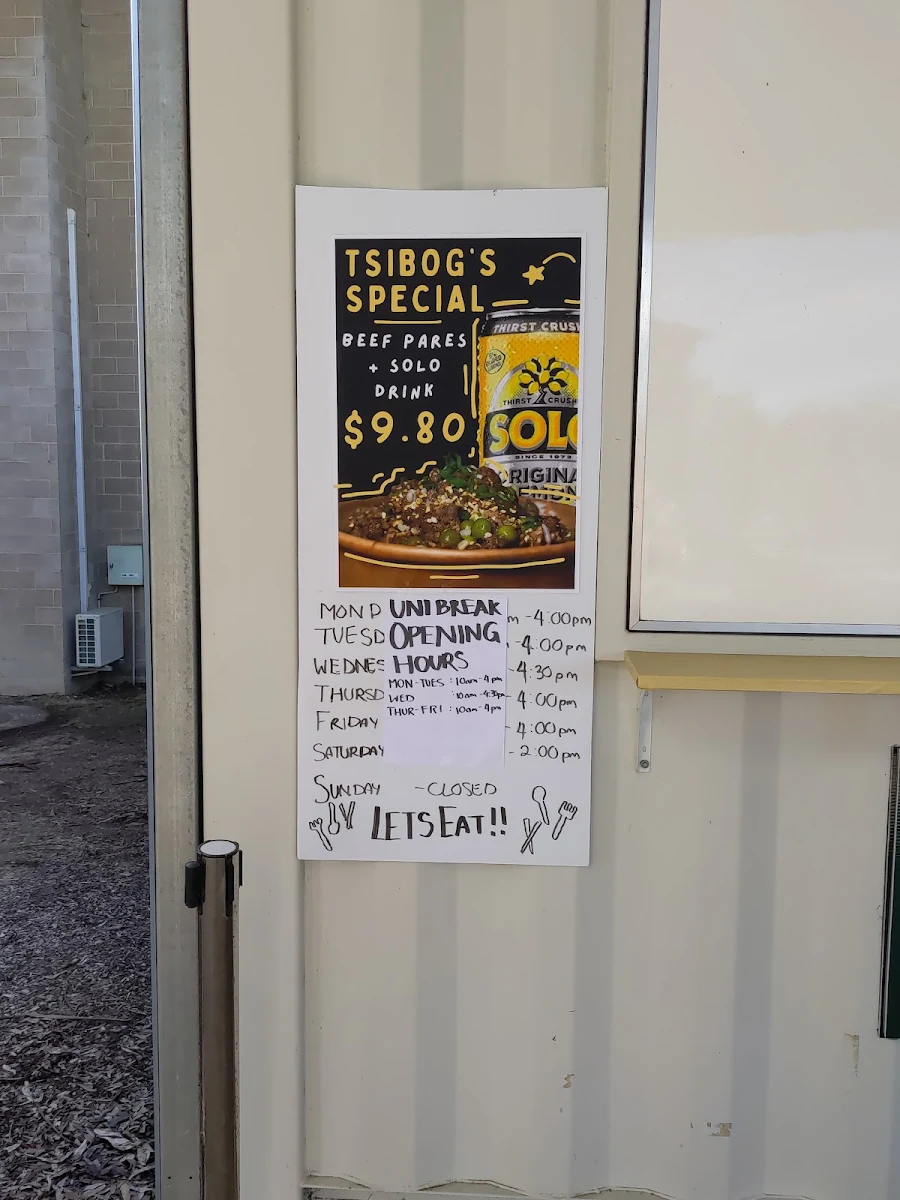 TSIBOG'S
SPECIAL
BEEF PARES
+ SOLO
DRINK
$9.80
THIRST CRUSH
THIRST CRUSH
SOLO
SINCE 1973
ORIGINAL
LEMON
UNI BREAK
OPENING
HOURS
MON-TUES : 10am-4pm
WED : 10am-4:30pm
THUR-FRI : 10am-4pm
MOND m -4:00pm
TUESD -4:00pm
WEDNES -4:30pm
THURSD - 4:00pm
FRIDAY - 4:00pm
SATURDAY - 2:00pm
SUNDAY -CLOSED
LETS EAT!!